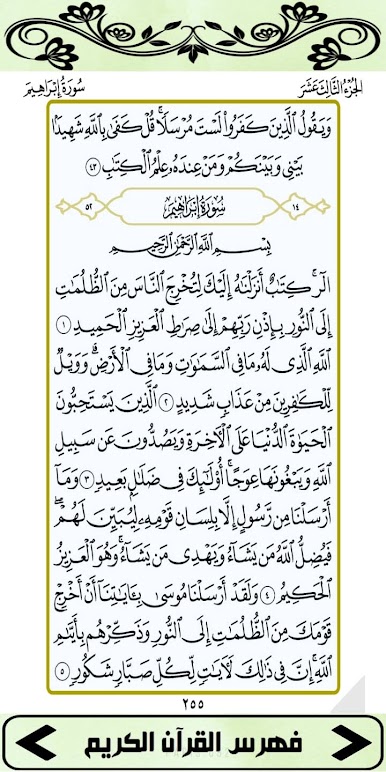 الجزء الثالث عشر
سورة إبراهيم
وَيَقُولُ ٱلَّذِينَ كَفَرُواْ لَسۡتَ مُرۡسَلٗاۚ قُلۡ كَفَىٰ بِٱللَّهِ شَهِيدَۢا
بَيۡنِي وَبَيۡنَكُمۡ وَمَنۡ عِندَهُۥ عِلۡمُ ٱلۡكِتَٰبِ ٤٣
١٤ سُورَةُ إِبۡرَاهِيمَ ٥٢
بِسۡمِ ٱللَّهِ ٱلرَّحۡمَٰنِ ٱلرَّحِيمِ
الٓرۚ كِتَٰبٌ أَنزَلۡنَٰهُ إِلَيۡكَ لِتُخۡرِجَ ٱلنَّاسَ مِنَ ٱلظُّلُمَٰتِ
إِلَى ٱلنُّورِ بِإِذۡنِ رَبِّهِمۡ إِلَىٰ صِرَٰطِ ٱلۡعَزِيزِ ٱلۡحَمِيدِ ١
ٱللَّهِ ٱلَّذِي لَهُۥ مَا فِي ٱلسَّمَٰوَٰتِ وَمَا فِي ٱلۡأَرۡضِۗ وَوَيۡلٞ
لِّلۡكَٰفِرِينَ مِنۡ عَذَابٖ شَدِيدٍ ٢ ٱلَّذِينَ يَسۡتَحِبُّونَ
ٱلۡحَيَوٰةَ ٱلدُّنۡيَا عَلَى ٱلۡأٓخِرَةِ وَيَصُدُّونَ عَن سَبِيلِ
ٱللَّهِ وَيَبۡغُونَهَا عِوَجًاۚ أُوْلَٰٓئِكَ فِي ضَلَٰلِۭ بَعِيدٖ ٣ وَمَآ
أَرۡسَلۡنَا مِن رَّسُولٍ إِلَّا بِلِسَانِ قَوۡمِهِۦ لِيُبَيِّنَ لَهُمۡۖ
فَيُضِلُّ ٱللَّهُ مَن يَشَآءُ وَيَهۡدِي مَن يَشَآءُۚ وَهُوَ ٱلۡعَزِيزُ
ٱلۡحَكِيمُ ٤ وَلَقَدۡ أَرۡسَلۡنَا مُوسَىٰ بِـَٔايَٰتِنَآ أَنۡ أَخۡرِجۡ
قَوۡمَكَ مِنَ ٱلظُّلُمَٰتِ إِلَى ٱلنُّورِ وَذَكِّرۡهُم بِأَيَّىٰمِ
ٱللَّهِۚ إِنَّ فِي ذَٰلِكَ لَأٓيَٰتٖ لِّكُلِّ صَبَّارٖ شَكُورٖ ٥
٢٥٥
فهرس القرآن الكريم